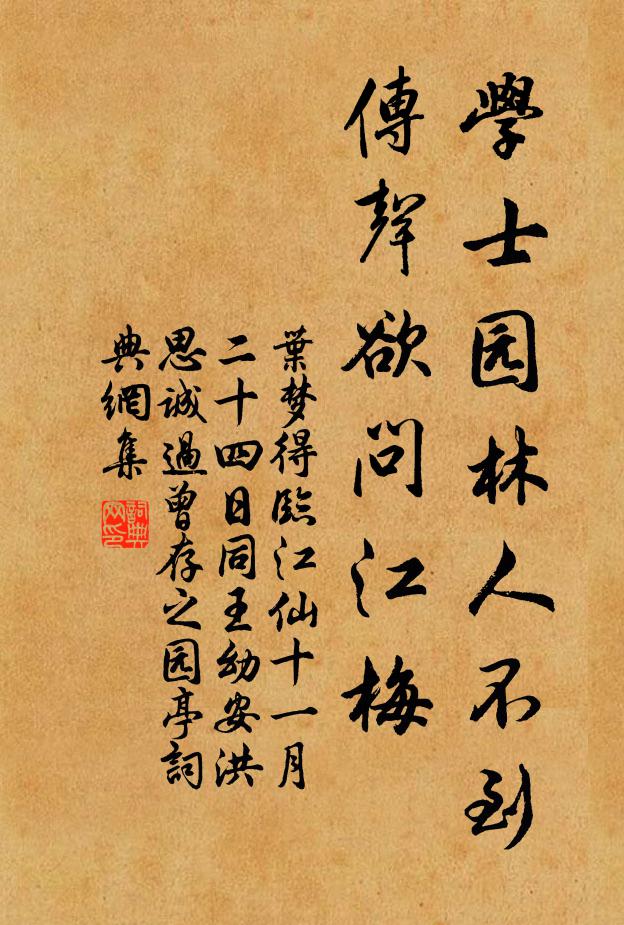 學士园林人不到
傳聲欲问江梅
葉梦得臨江仙十一月
二十四日同王幼安洪
思誠過曾存之园亭詞
典網集
詞典
网印